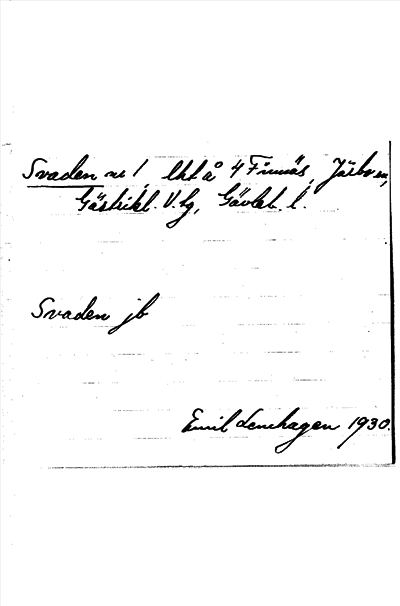 Svaden nr 1, lht å 4 Finnäs, Järbo sn,
Gästrikl. V. tg, Gävleb. l.
Svaden jb
Emil Lenehagen 1930.